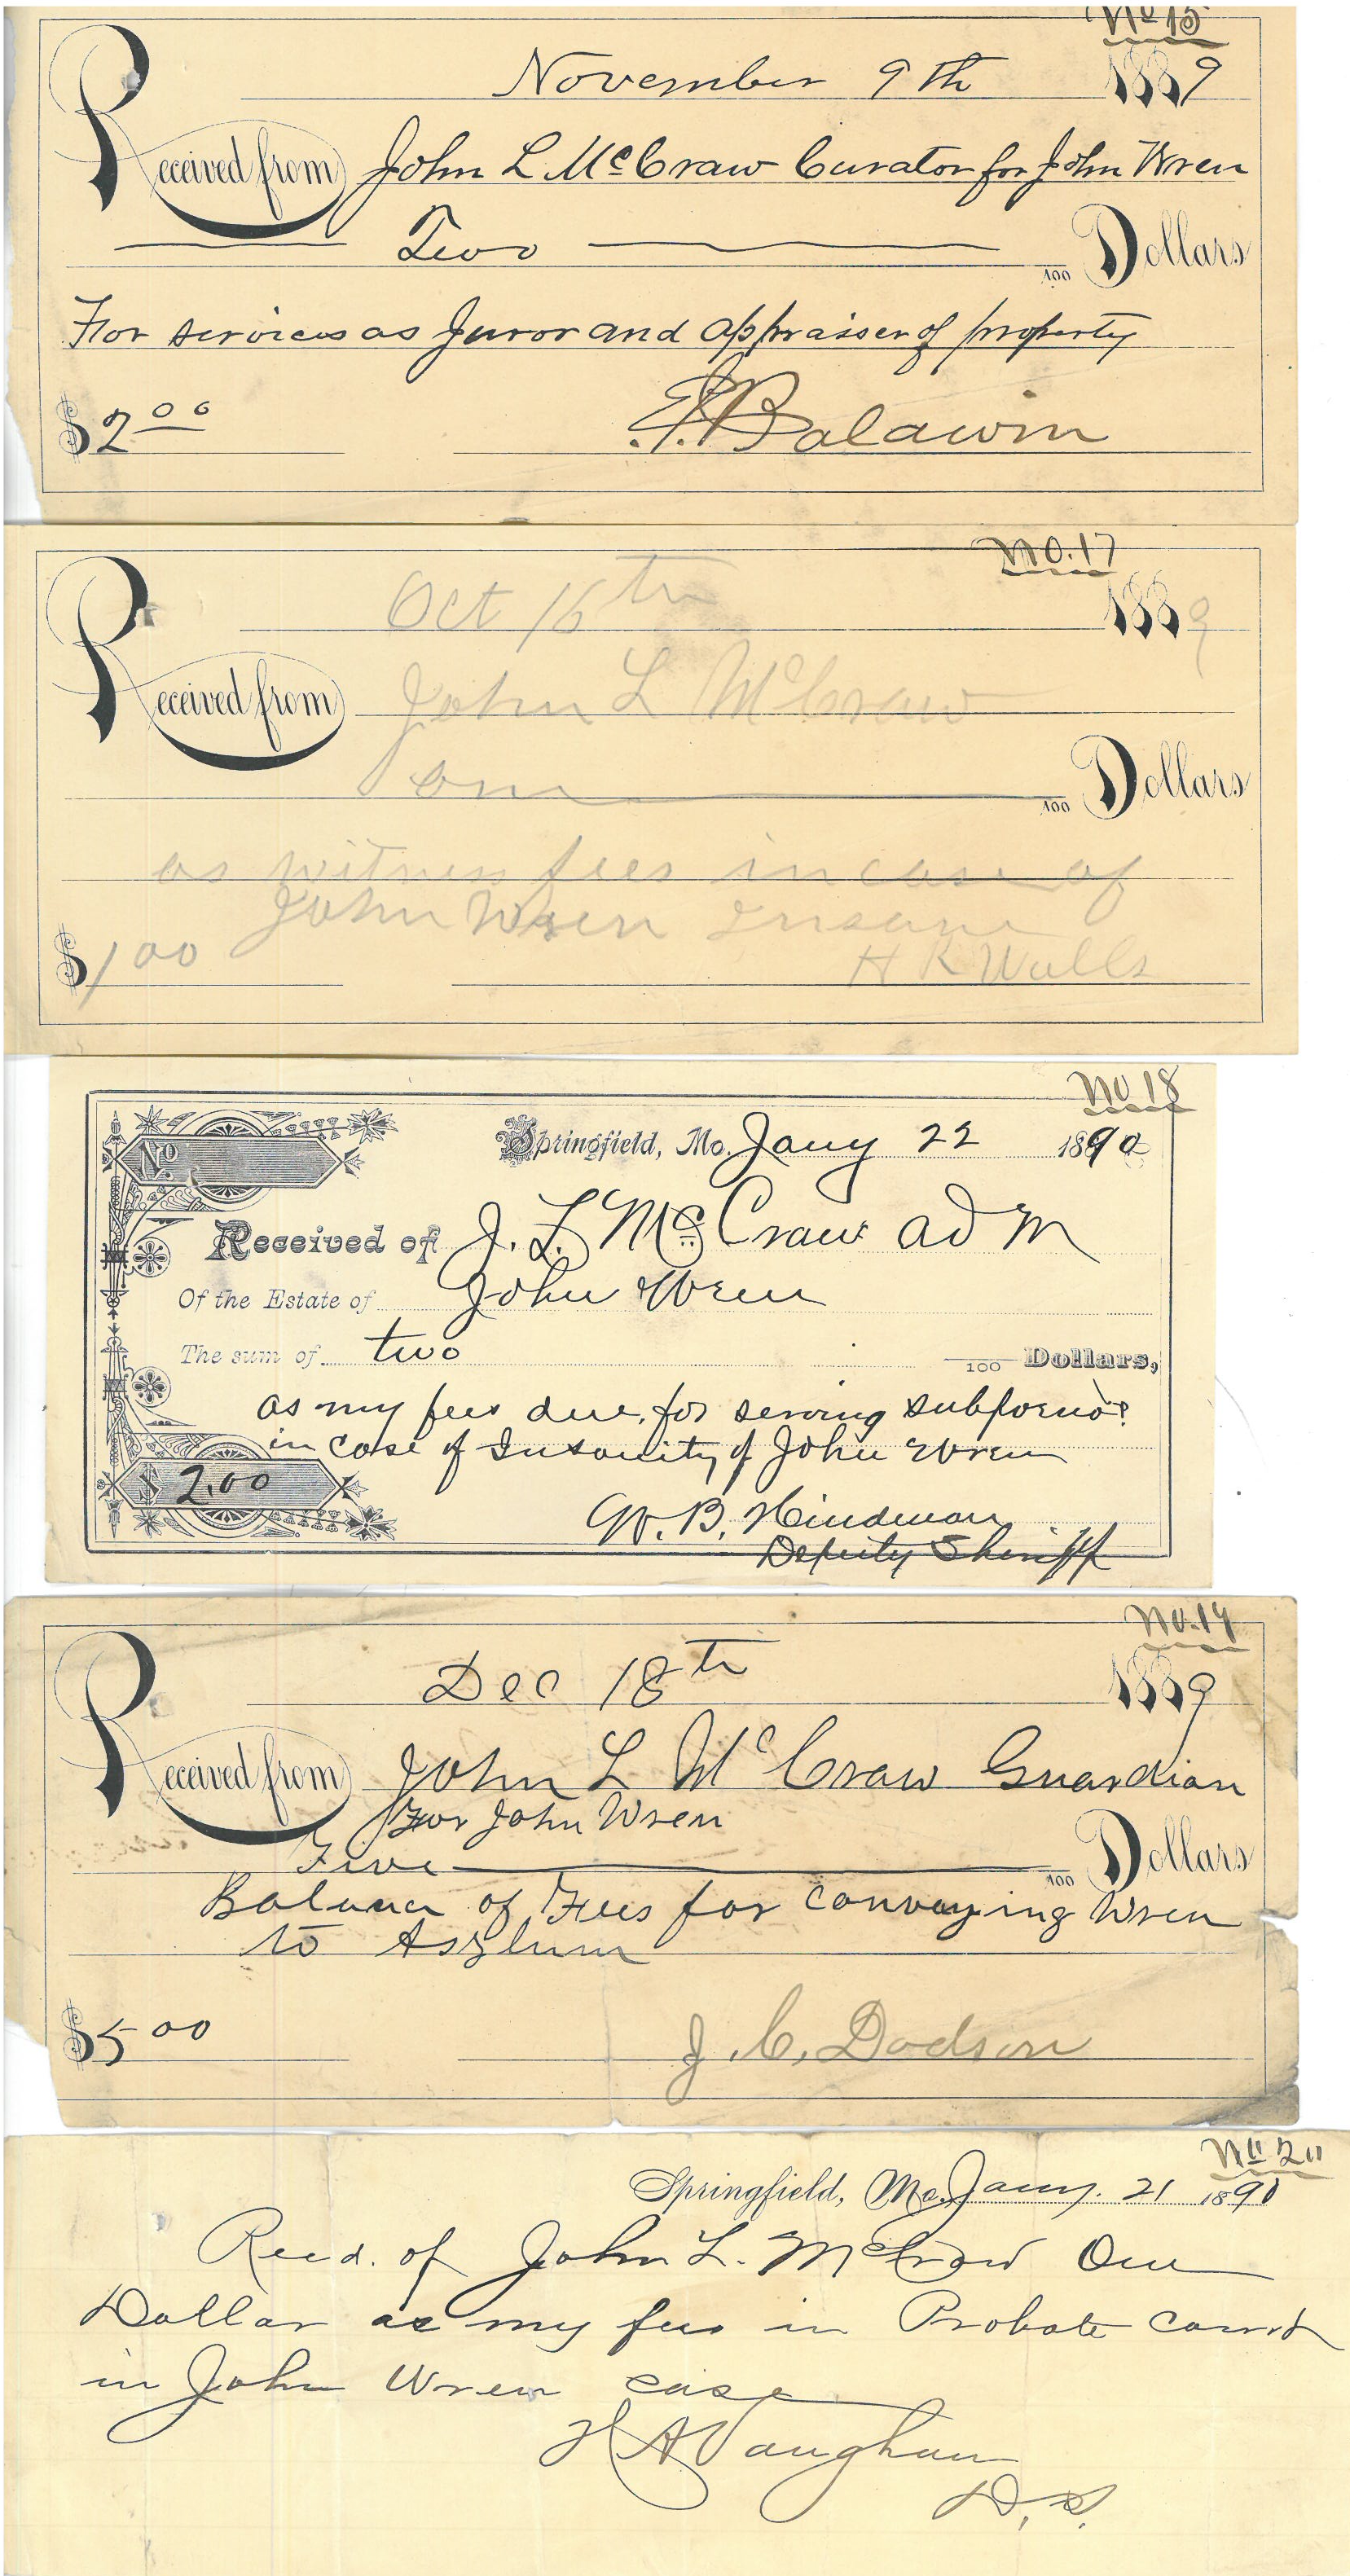 No 15
November 9th 1889
Received from John L McCraw Curator for John Wren
Two /100 Dollars
For services as Juror and appraiser of property
$2.00 Baldwin
No. 17
Oct 16th 1889
Received from John L McCraw
one /100 Dollars
as witness fees in case of
John Wren Insane
$1.00 H K Walls
No 18
No
Springfield, Mo. Jany 22 1890
Received of J. L. McCraw adm
Of the Estate of John Wren
The sum of two /100 Dollars,
as my fees due, for serving
in case of Insanity of John Wren
$ 2.00
W. B. Hindman
Deputy Sheriff
No. 19
Dec 18th 1889
Received from John L McCraw Guardian
For John Wren
Five /100 Dollars
Balance of Fees for conveying Wren
to Asylum
$5.00 J. C. Dodson
No 20
Springfield, Mo. Jany. 21 1890
Recd. of John L. McCraw One
Dollar as my fees in Probate Court
in John Wren case
Vaughan
D. S.